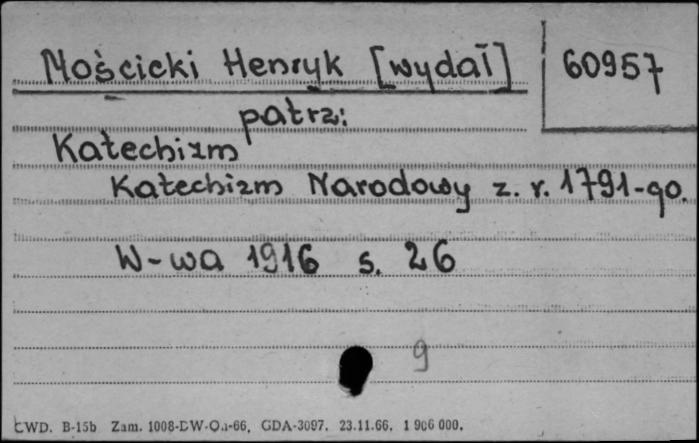 Mościcki Henryk [wydał] 60957
patrz:
Katechizm
Katechizm Narodowy z. r. 1791-go.
W-wa 1916 s. 26
9
CWD. B-15b Zam. 1008-DW- GDA-3097. 23.11.66. 1 906 000.